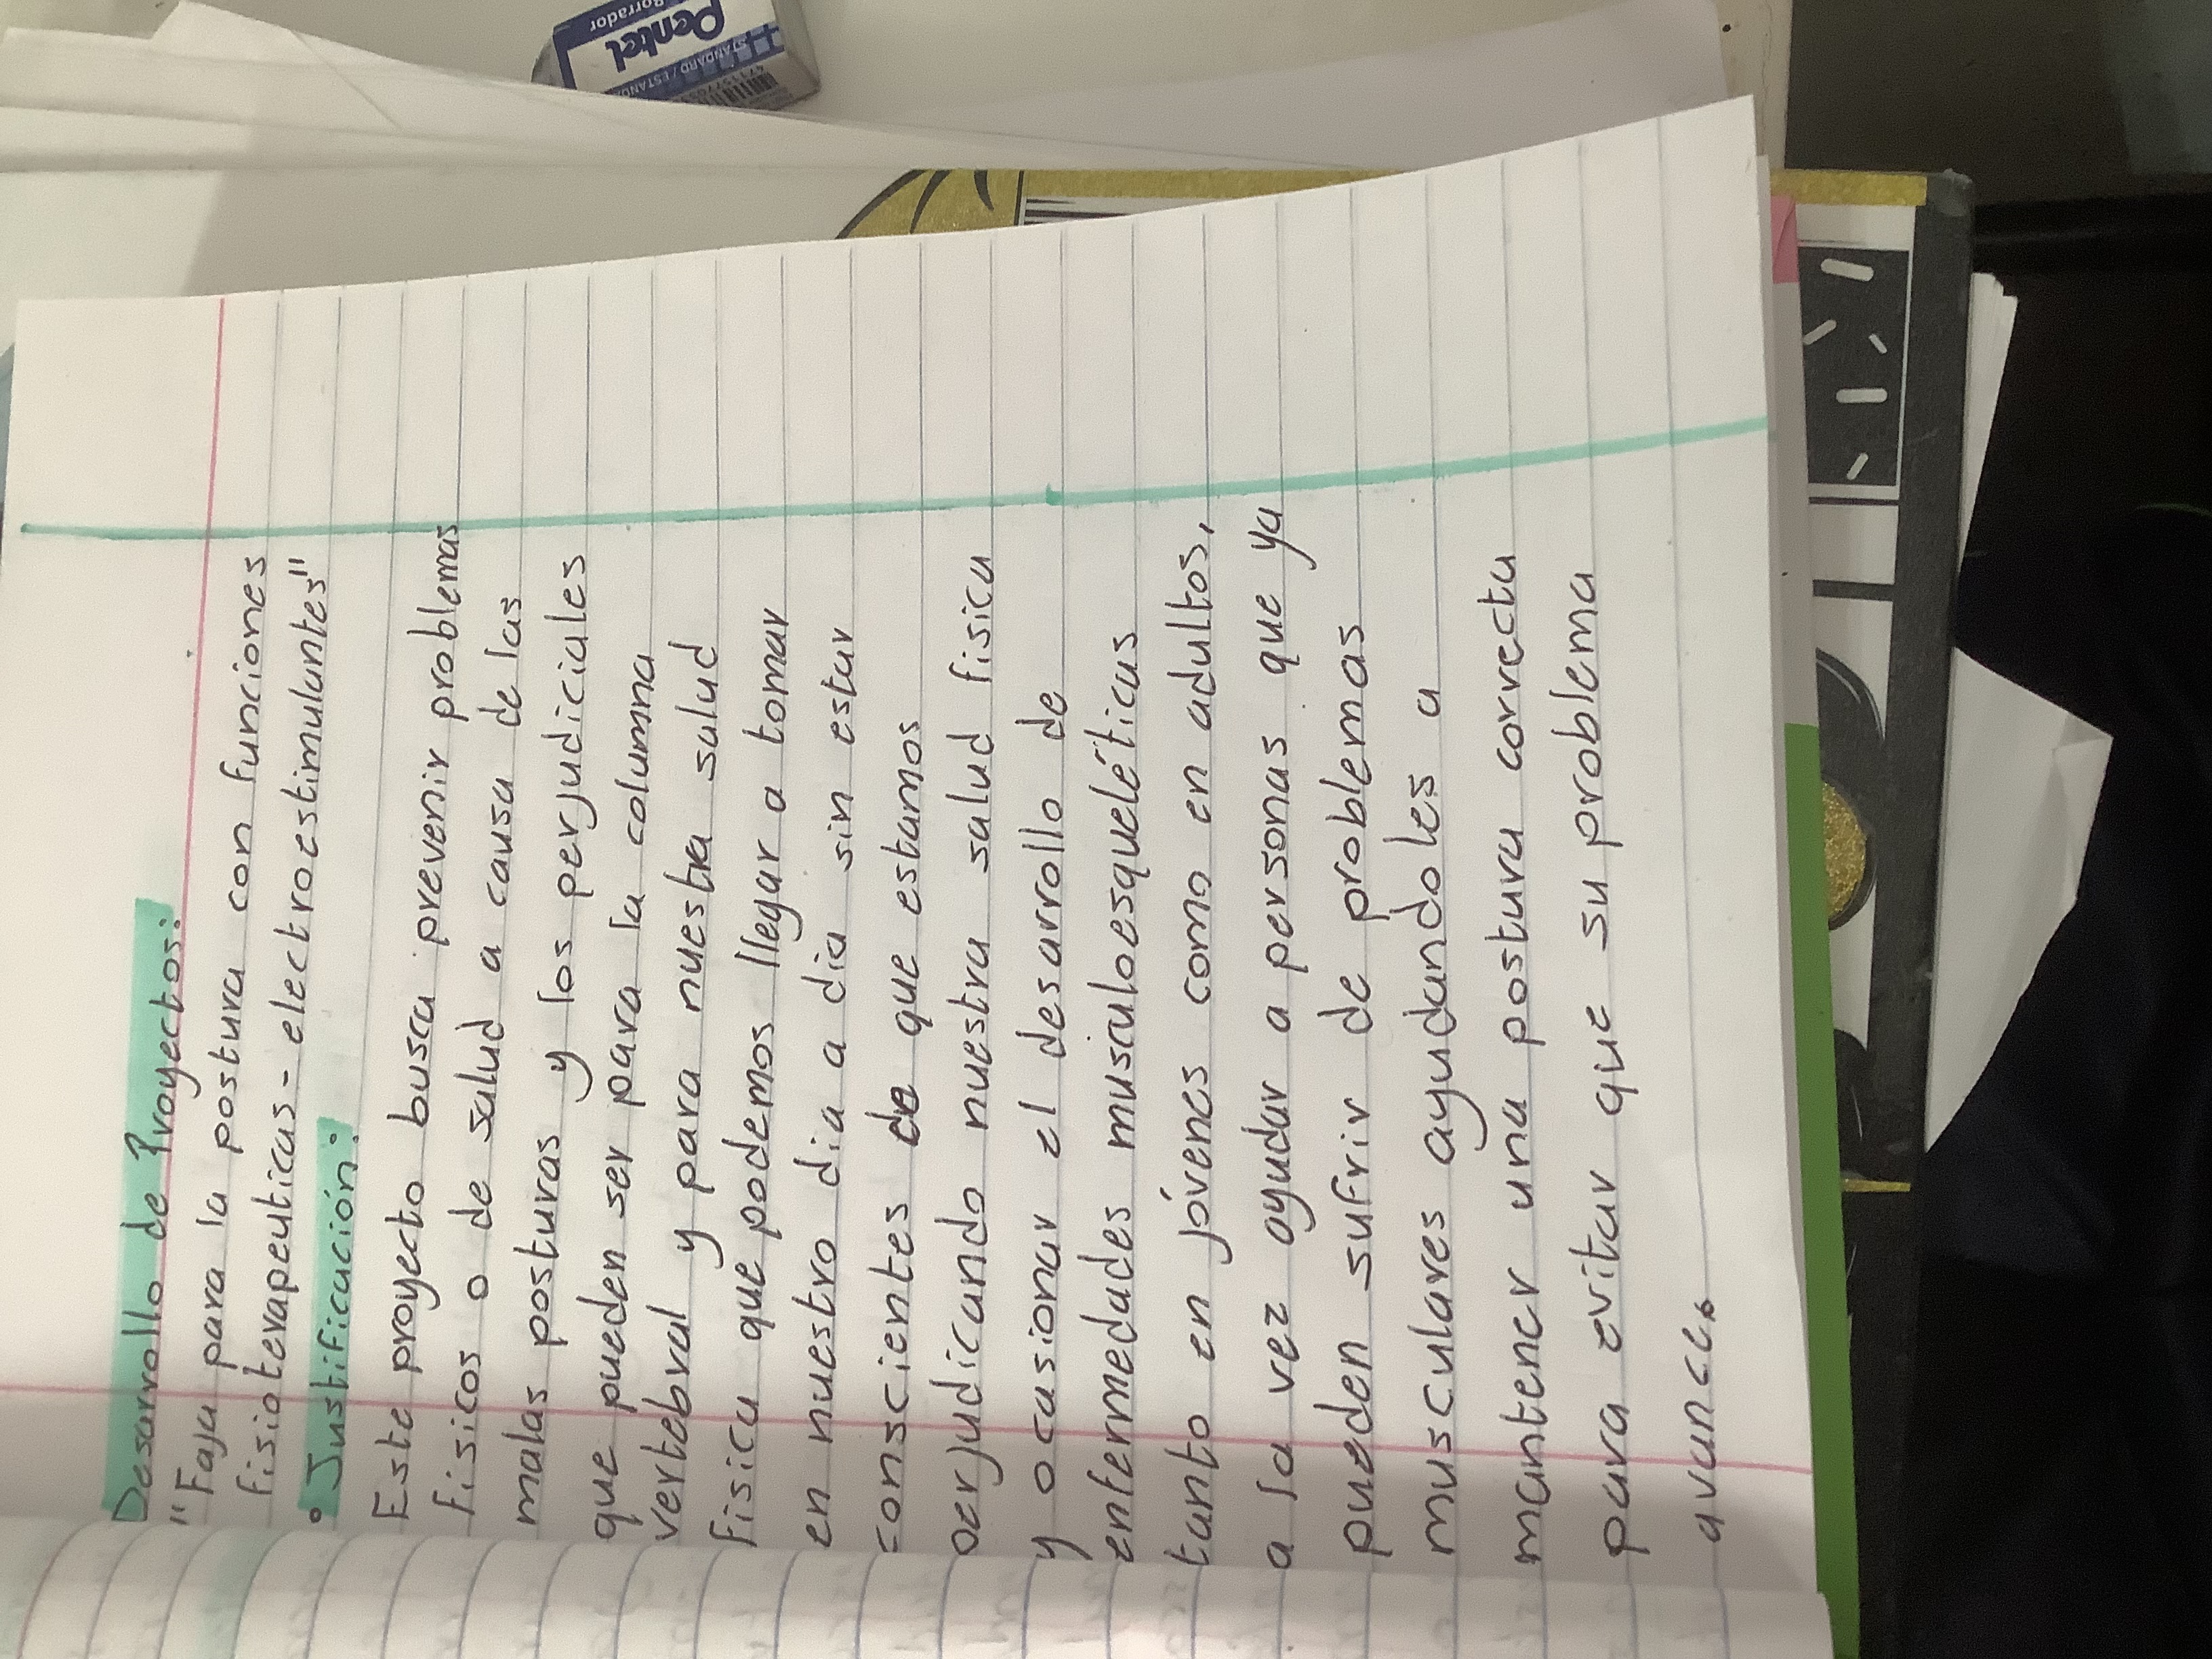 Desarrollo de Proyectos:
"Faja para la postura con funciones
fisioterapeuticas - electroestimulantes"
• Justificación:
Este proyecto busca prevenir problemas
fisicos o de salud a causa de las
malas posturas y los perjudiciales
que pueden ser para la columna
vertebral y para nuestra salud
fisica que podemos llegar a tomar
en nuestro dia a dia sin estar
conscientes de que estamos
perjudicando nuestra salud fisica
y ocasionar el desarrollo de
enfermedades musculoesqueléticas
tanto en jóvenes como en adultos,
a la vez ayudar a personas que ya
pueden sufrir de problemas
musculares ayudandoles a
mantener una postura correcta
para evitar que su problema
avance.
Pentel
Borrador
STANDARD / ESTANDA